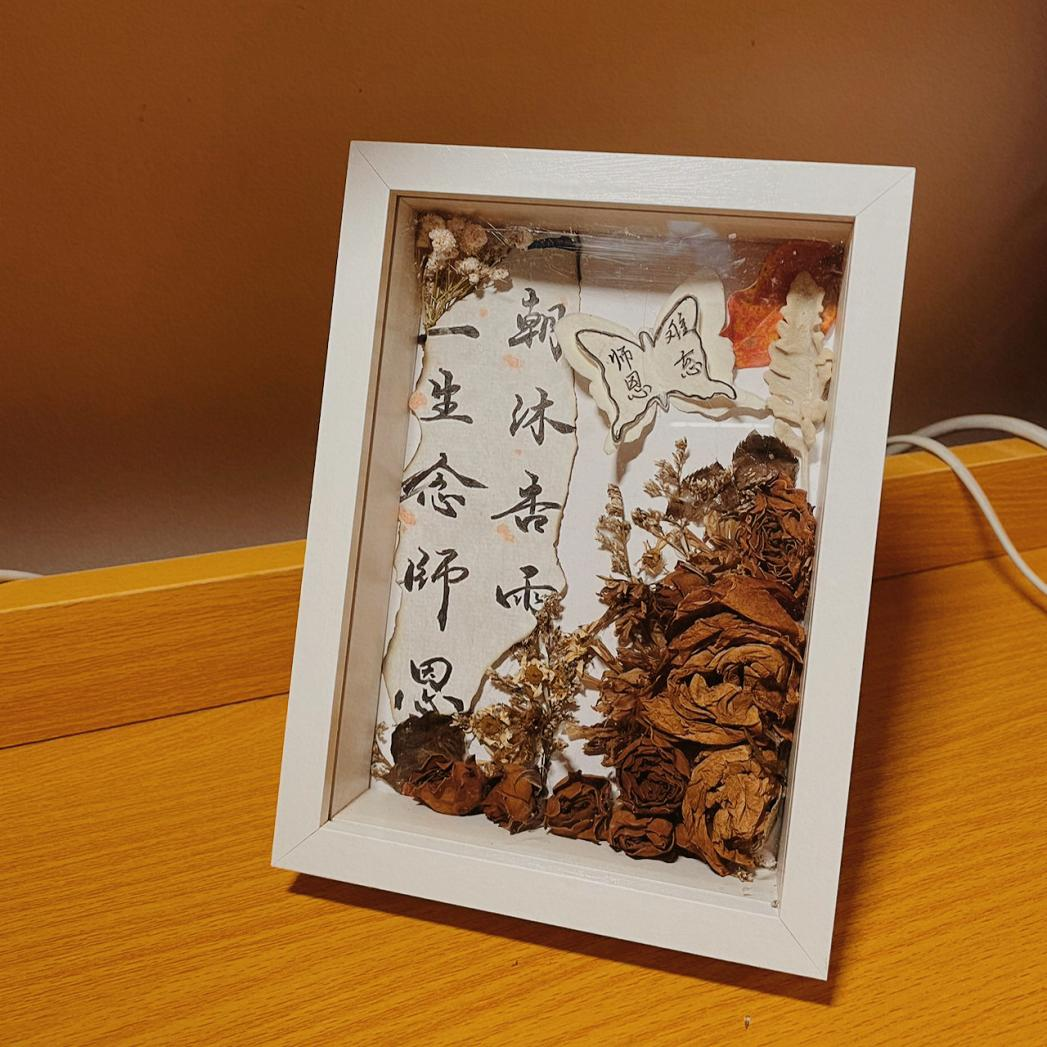 朝沐杏雨
一生念師恩
师恩
难忘